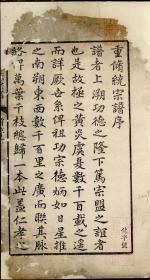 重脩統宗譜序
譜者上溯功德之隆下篤宗盟之誼者
也是故極之黃炎虞夏數千百載之遥
而詳厥世系俾祖功宗德炳如日星推
之南朔東西數千百里之廣而聯其脉
絡萬葉千枝總歸一本此蓋仁孝之